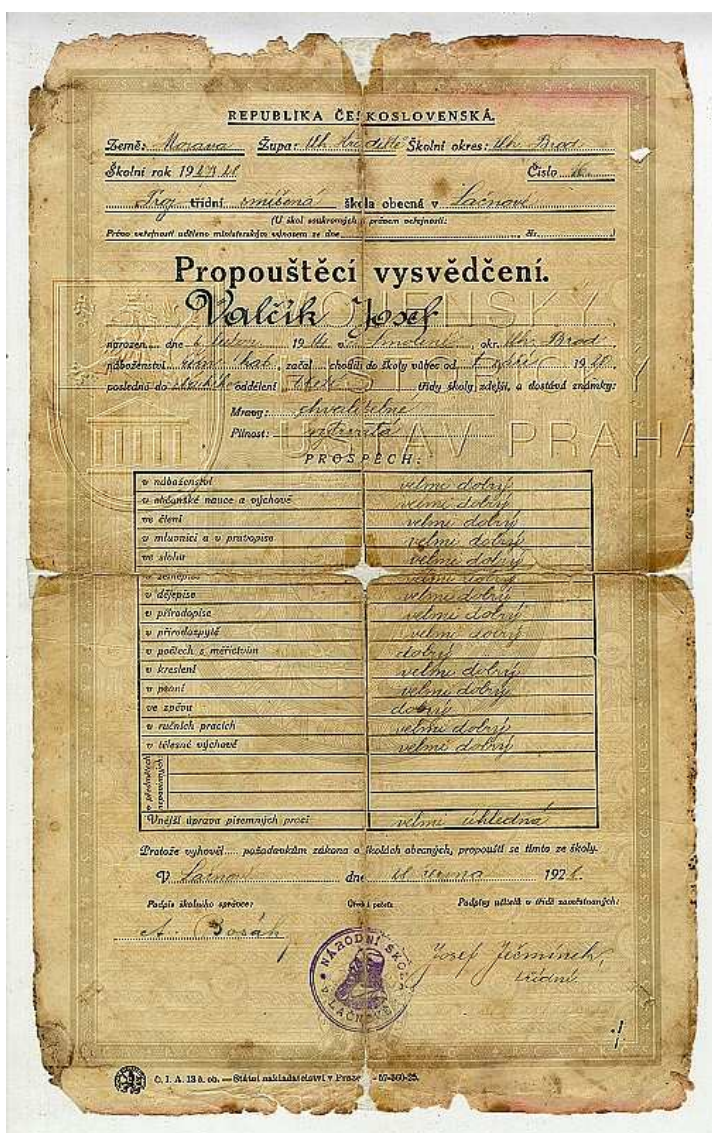 REPUBLIKA ČESKOSLOVENSKÁ.
Země: Morava Župa: Uh. Hradiště Školní okres: Uh. Brod
Školní rok 19 Číslo
Troj třídní smíšená škola obecná v Lačnově
(U škol soukromých s právem veřejnosti:
Právo veřejnosti uděleno ministerským výnosem ze dne čís. )
Propouštěcí vysvědčení.
Valčík Josef
narozen dne 19 v Smolině, okr. Uh. Brod,
náboženství řím. kat., začal choditi do školy vůbec od 1. září 1920.
posledně do oddělení třetí třídy školy zdejší, a dostává známky:
Mravy: chvalitebné
Pilnost: vytrvalá
PROSPĚCH:
v náboženství velmi dobrý
v občanské nauce a výchově velmi dobrý
ve čtení velmi dobrý
v mluvnici a v pravopise velmi dobrý
ve slohu velmi dobrý
v zeměpise velmi dobrý
v dějepise velmi dobrý
v přírodopise velmi dobrý
v přírodozpytě velmi dobrý
v počtech s měřictvím dobrý
v kreslení velmi dobrý
v psaní velmi dobrý
ve zpěvu dobrý
v ručních pracích velmi dobrý
v tělesné výchově velmi dobrý
v předmětech nepovinných
Vnější úprava písemných prací velmi úhledná
Protože vyhověl požadavkům zákona o školách obecných, propouští se tímto ze školy.
V Lačnově dne června 192
Podpis školního správce: Podpisy učitelů v třídě zaměstnaných:
A. Bosák Josef Ječmínek,
třídní.
NÁRODNÍ ŠKOLA V LAČNOVĚ
Č. I. A. 13 č. ob. — Státní nakladatelství v Praze - 57-360-25.
VOJENSKÝ
HISTORICKÝ
ÚSTAV PRAHA